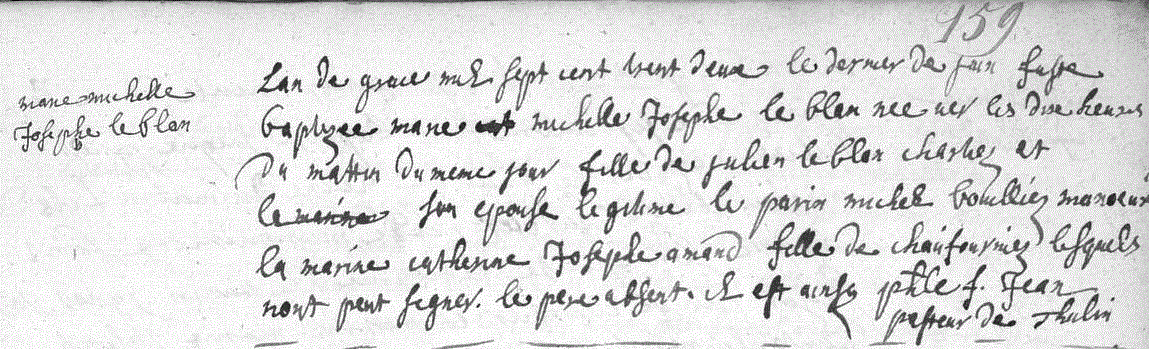 159
marie michelle
Josephe le blon
Lan de grace mil sept cent trent deux le dernier de juin fuste
baptizee marie michelle Josephe le blon nee ver les dix heures
du mattin du meme jour fille de julien le blon charlier et
son epouse legitime le parin michel boulliez manoeur
la marine catherine Josephe amand fille de chaufourniez lesquels
nont peut signer. le pere absent. il est ainsy f. Jean
pasteur de Thulin